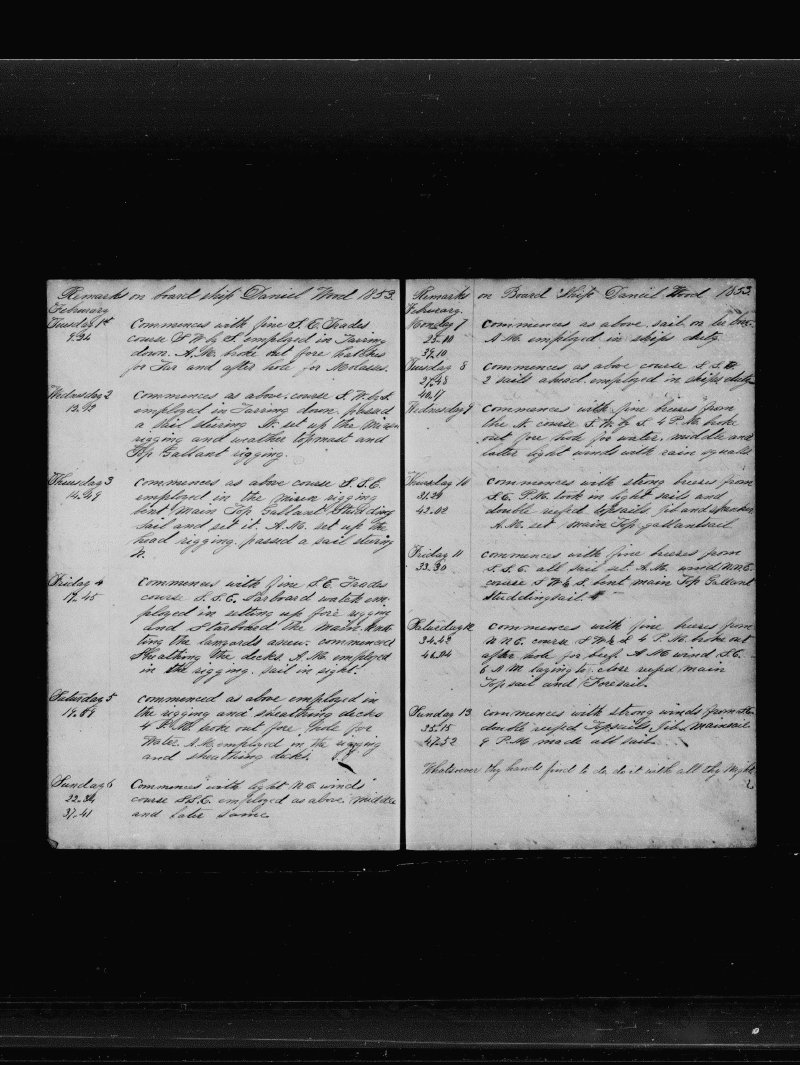 Remarks on board ship Daniel Wood 1853.
February
Tuesday 1st Commences with fine S.E. Trades
9.24 course S W by S. employed in Tarring
down. A.M. broke out fore hatches
for Tar and after hole for Molases.
Wednesday 2 Commences as above. course S. W. by S.
employed in Tarring down. passed
a Sail steering N. set up the Mizen
rigging and weather topmast and
Top Gallant rigging.
Thursday 3 Commences as above course S.S.E.
14.49 employed in the mizen rigging
bent Main Top Gallant Studding
Sail and set it. A.M. set up the
head rigging. passed a sail steering
N.
Friday 4 Commences with fine S.E. Trades
17.45 course S.S.E. Larboard watch em-
ployed in setting up fore rigging
and Starboard the Main.
ting the lanyards anew. commenced
Sheathing the decks. A.M. employed
in the rigging. sail in sight.
Saturday 5 commenced as above employed in
the rigging and sheathing decks
4 P.M. broke out fore hole for
Water. A.M. employed in the rigging
and sheathing decks.
Sunday 6 Commences with light N.E. winds
22.34 course S.S.E. employed as above. Middle
37.41 and later same
Remarks on Board Ship Daniel Wood 1853
February.
Monday 7 Commences as above. sail on lee bow.
25.10 A.M. employed in ships duty.
39.10
Tuesday 8 commences as above course S.S.E.
27.48 2 sails ahead. employed in ships duty
40.17
Wednesday 9 Commences with fine breeses from
the N. course S.W. by S. 4 P.M. broke
out fore hole for water. middle and
latter light winds with rain squalls
Thursday 10 Commences with strong breeses from
31.29 S.E. P.M. took in light sails and
42.02 double reefed topsails, jib and spanker
A.M. set main Top gallantsail
Friday 11 commences with fine breeses from
33.30 S.S.E. all sail set. A.M. wind N.N.E.
course S W by S. bent main Top Gallant
Studdingsail.
Saturday 12 commences with fine breeses from
34.42 N N E. course S W by S 4 P.M. broke out
46.04 after hole for beef. A.M. wind S.E.
6 A.M. laying to, close reefed main
Topsail and Foresail.
Sunday 13 commences with strong winds from
35.15 double reefed Topsails Jib & Mainsail
47.52 9 P.M. made all sail.
Whatsoever thy hands find to do do it with all thy Might